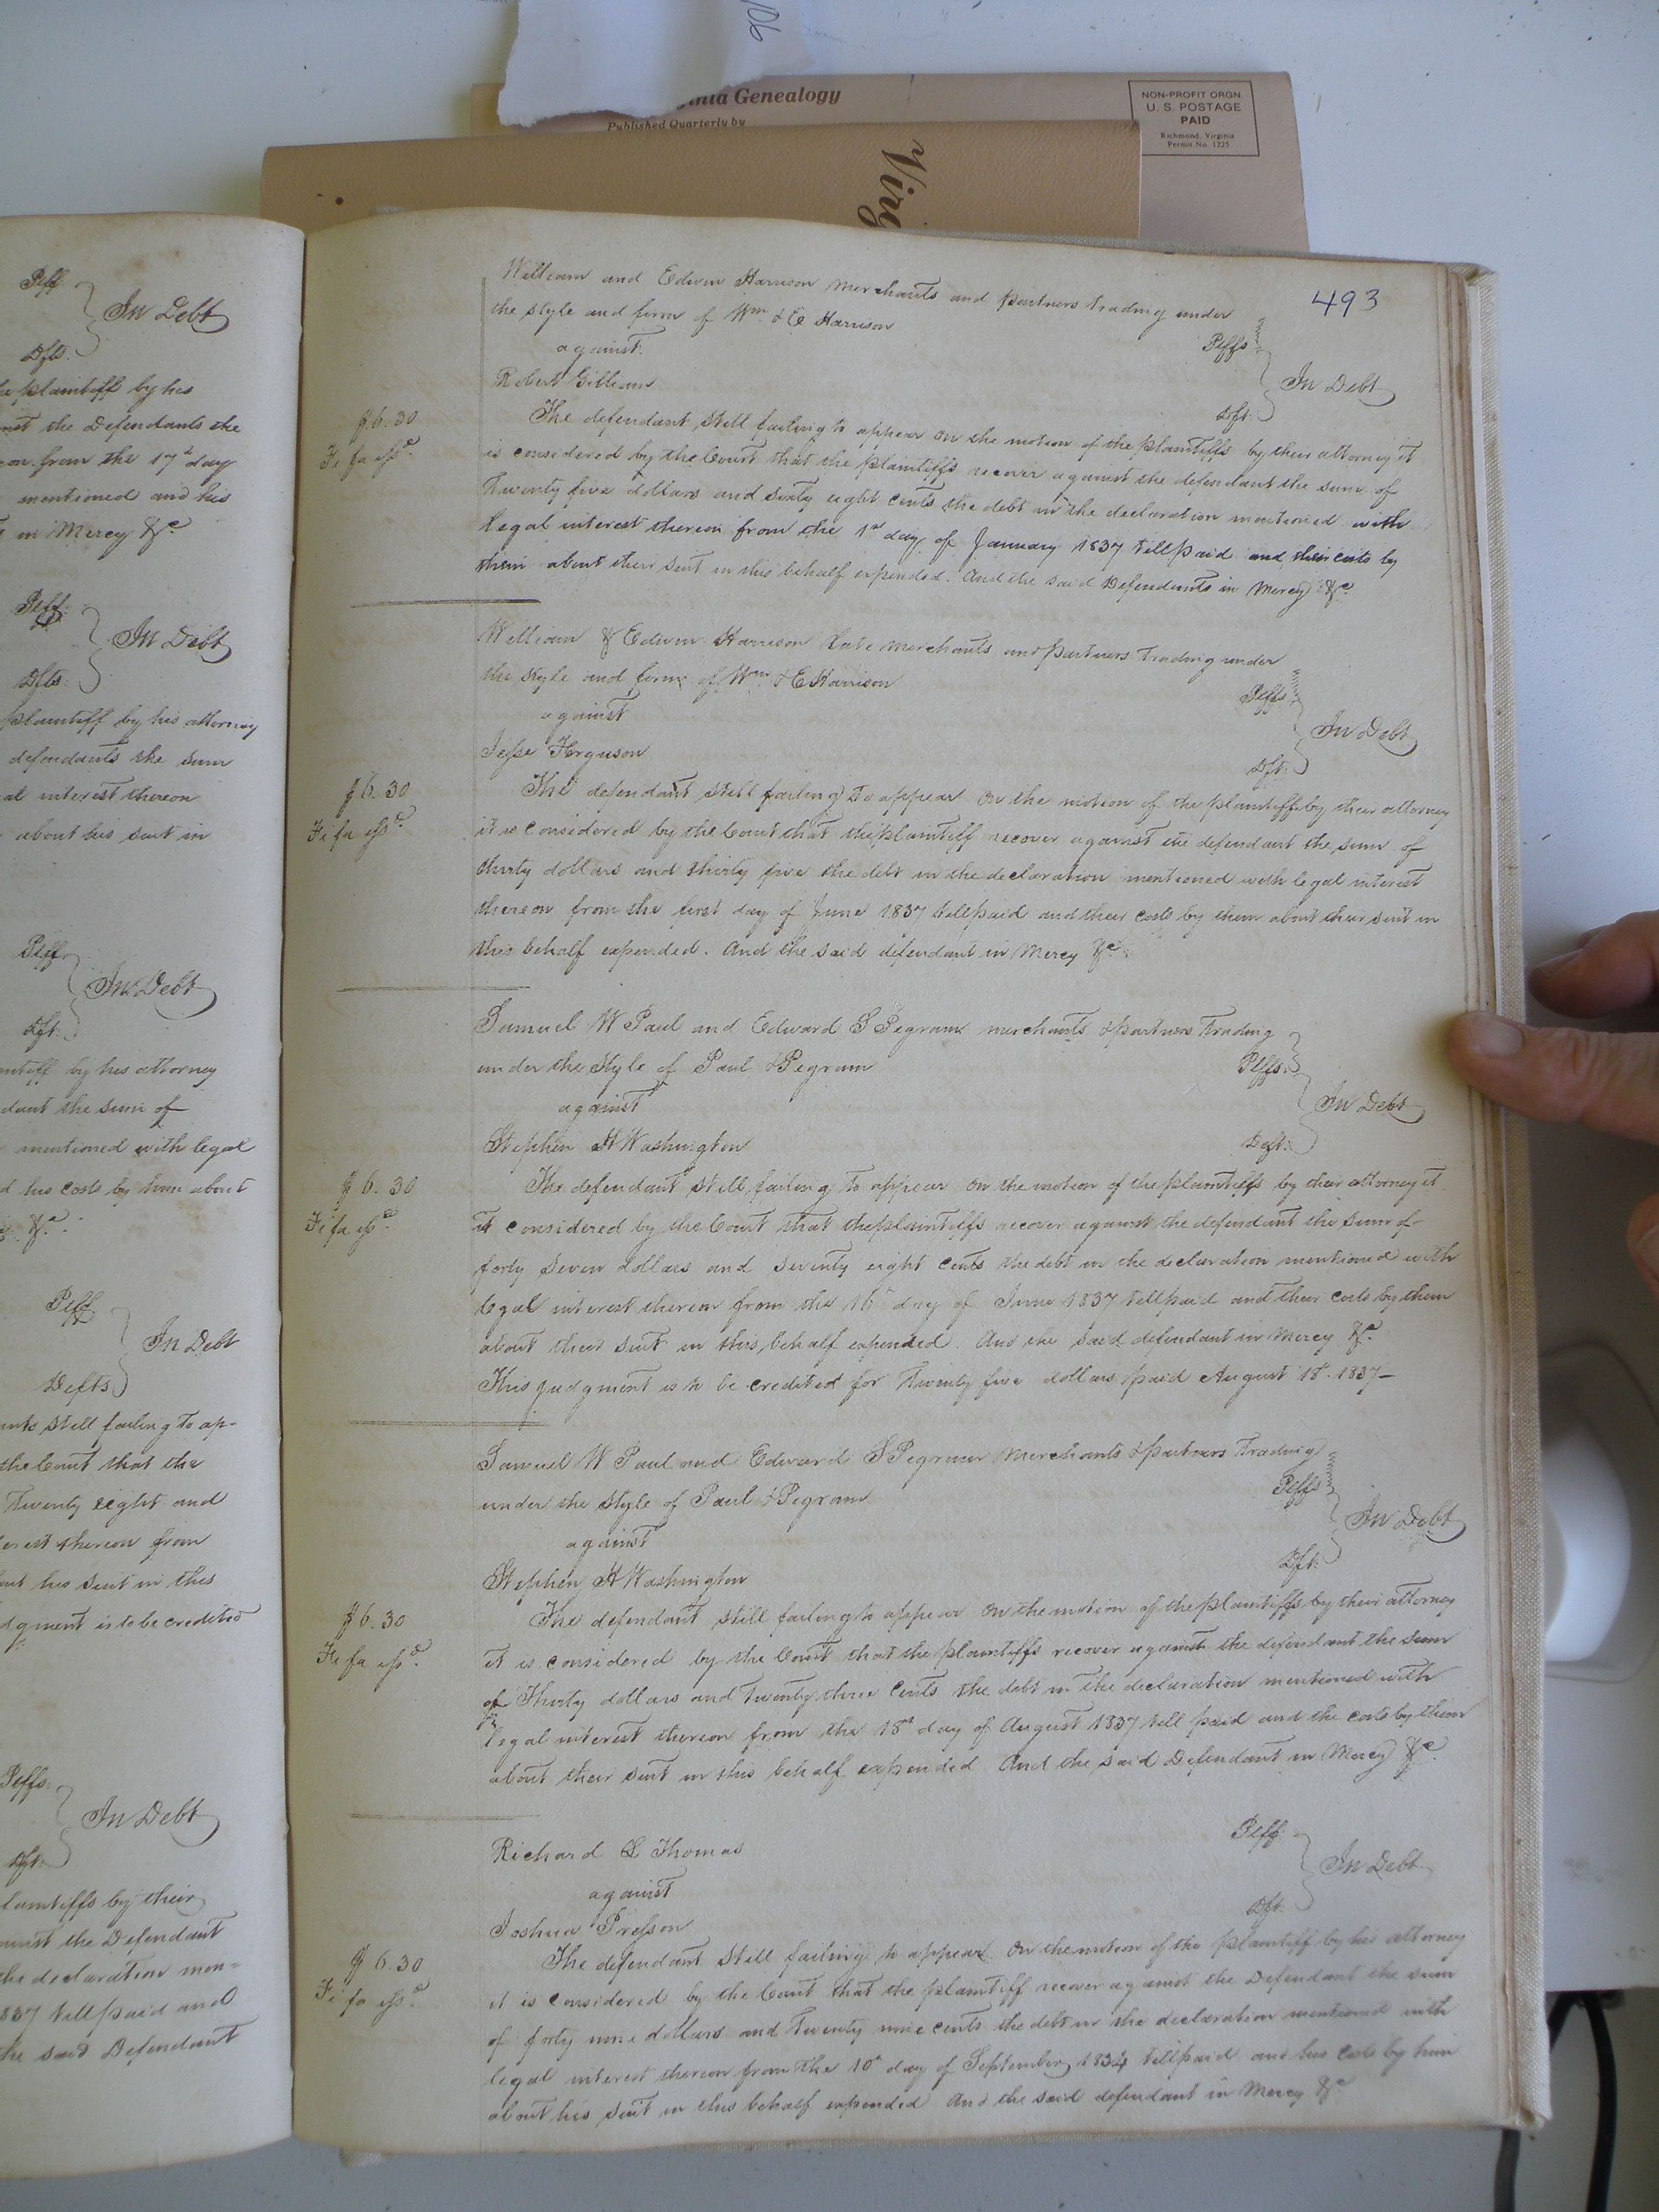 106
inia Genealogy
Published Quarterly by
NON-PROFIT ORGN
U. S. POSTAGE
PAID
Richmond, Virginia
Permit No. 1225
Virg
Plff
In Debt
Dfts.
plaintiff by his
the Defendants the
from the 17th day
mentioned and his
in Mercy &c
Plff.
In Debt
Dfts.
plaintiff by his attorney
defendants the sum
interest thereon
about his suit in
Plff
In Debt
Dft.
by his attorney
the sum of
mentioned with legal
his costs by him about
&c.
Plff
In Debt
Defts
still failing to ap-
the Court that the
Twenty eight and
thereon from
his suit in this
is to be credited
Plffs.
In Debt
Dft.
by their
the Defendant
the declaration men=
till paid and
the said Defendant
493
William and Edwin Harrison Merchants and partners trading under
the style and firm of Wm & E Harrison
Plffs
against.
In Debt
Robert Gilliam
Dft.
$6.30
The defendant still failing to appear on the motion of the plaintiffs by their attorney it
Fi fa issd.
is considered by the Court that the plaintiffs recover against the defendant the sum of
Twenty five dollars and sixty eight cents the debt in the declaration mentioned with
legal interest thereon from the 1st day of January 1837 till paid and their costs by
them about their suit in this behalf expended. And the said Defendants in Mercy &c.
William & Edwin Harrison late merchants and partners Trading under
the style and firm of Wm & E Harrison
Plffs
against
In Debt
Jesse Ferguson
Dft.
$6.30
The defendant still failing to appear on the motion of the plaintiffs by their attorney
Fi fa issd.
it is considered by the Court that the plaintiff recover against the defendant the sum of
thirty dollars and thirty five the debt in the declaration mentioned with legal interest
thereon from the first day of June 1837 till paid and their costs by them about their suit in
this behalf expended. And the said defendant in Mercy &c.
Samuel W Paul and Edward S Pegram merchants & partners Trading
under the style of Paul & Pegram
Plffs.
against
In Debt
Stephen H Washington
Deft.
$6.30
The defendant still failing to appear on the motion of the plaintiffs by their attorney it
Fi fa issd.
it considered by the Court that the plaintiffs recover against the defendant the sum of
forty seven dollars and seventy eight cents the debt in the declaration mentioned with
legal interest thereon from the 16th day of June 1837 till paid and their costs by them
about their suit in this behalf expended. And the said defendant in Mercy &c.
This judgment is to be credited for Twenty five dollars paid August 18th. 1837—
Samuel W Paul and Edward S Pegram Merchants & partners Trading
under the style of Paul & Pegram
Plffs
against
In Debt
Stephen H Washington
Dft.
$6.30
The defendant still failing to appear on the motion of the plaintiffs by their attorney
Fi fa issd.
it is considered by the Court that the plaintiffs recover against the defendant the sum
of Thirty dollars and Twenty three Cents the debt in the declaration mentioned with
legal interest thereon from the 18th day of August 1837 till paid and the costs by them
about their suit in this behalf expended And the said Defendant in Mercy &c.
Richard L Thomas
Plff.
against
In Debt
Joshua Presson
Dft.
$6.30
The defendant still failing to appear on the motion of the plaintiff by his attorney
Fi fa issd.
it is considered by the Court that the plaintiff recover against the Defendant the sum
of forty nine dollars and Twenty nine cents the debt in the declaration mentioned with
legal interest thereon from the 10th day of September 1834 till paid and his costs by him
about his suit in this behalf expended And the said defendant in Mercy &c